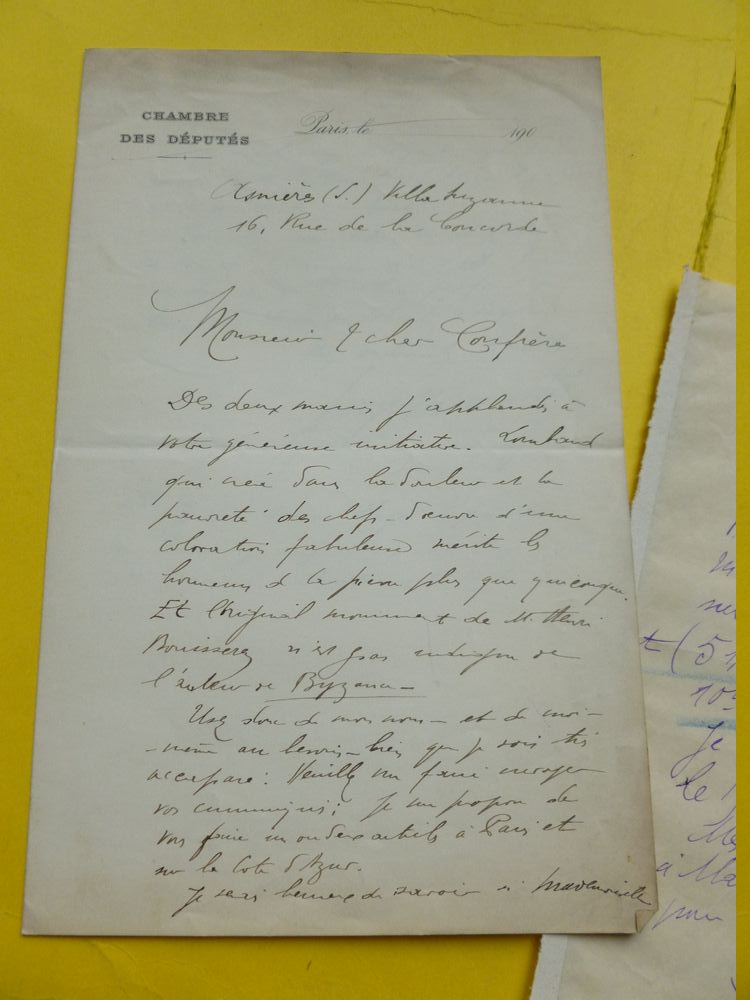 CHAMBRE
DES DÉPUTÉS
Paris, le 190
Asnières (S.) Villa Suzanne
16, Rue de la Concorde
Monsieur & cher Confrère
Des deux mains j'applaudis à
votre généreuse initiative. Lombard
qui créa dans la douleur et la
pauvreté des chefs-d'œuvre d'une
coloration fabuleuse mérite les
honneurs de la pierre plus que quiconque.
Et l'original monument de M. Henri
Bouisserez n'est pas indigne de
l'auteur de Byzance -
Usez donc de mon nom - et de moi-
-même au besoin - bien que je sois très
accaparé : Veuillez me faire envoyer
vos communiqués ; je me propose de
vous faire un ou deux articles à Paris et
sur la Côte d'Azur.
Je serais heureux de savoir si Mademoiselle
t (5
10
je
le
à Ma
pour